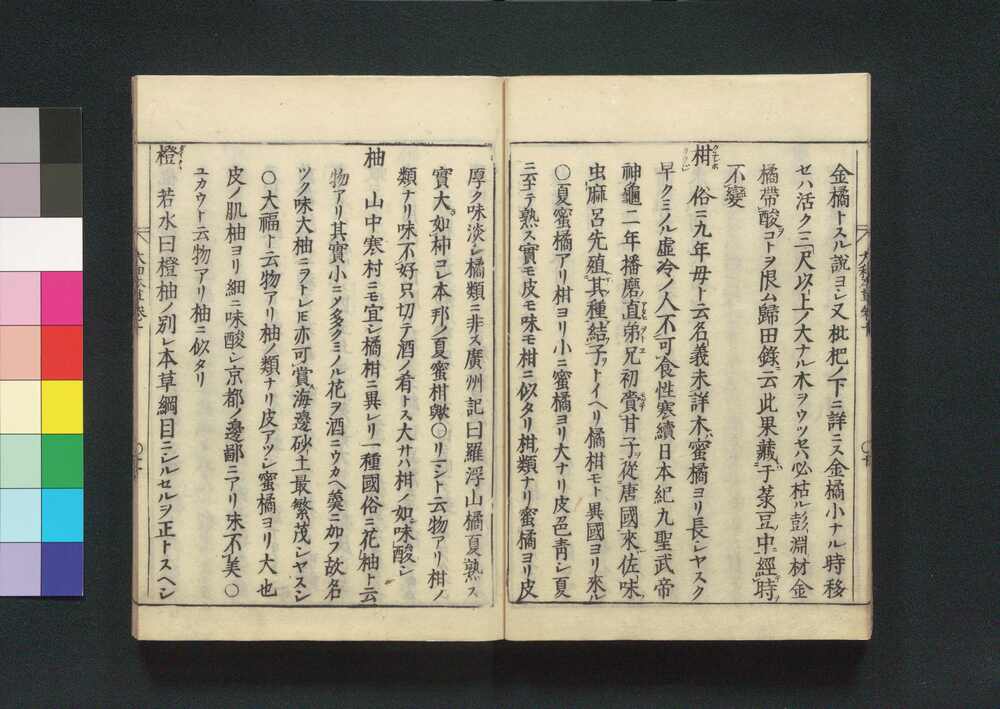 金橘トスル說ヨシ又枇杷ノ下ニ詳ニス金橘小ナル時移
セハ活ク三尺以上ノ大ナル木ヲウツセハ必枯ル彭淵材金
橘帶酸コトヲ恨ム歸田錄ニ云此果藏于菉豆中經時
不變
柑 俗ニ九年母ト云名義未詳木蜜橘ヨリ長シヤスク
早クミノル虛冷ノ人不可食性寒續日本紀九聖武帝
神龜二年播磨直弟兄初賞甘子從唐國來佐味
虫麻呂先殖其種結子トイヘリ橘柑モト異國ヨリ來ル
〇夏蜜橘アリ柑ヨリ小ニ蜜橘ヨリ大ナリ皮邑青シ夏
ニ至テ熟ス實モ皮モ味モ柑ニ似タリ柑類ナリ蜜橘ヨリ皮
厚ク味淡シ橘類ニ非ス廣州記曰羅浮山橘夏熟ス
實大如柿コレ本邦ノ夏蜜柑歟〇リーシト云物アリ柑ノ
類ナリ味不好只切テ酒ノ肴トス大サハ柑ノ如味酸シ
柚 山中寒村ニモ宜シ橘柑ニ異レリ一種國俗ニ花柚ト云
物アリ其實小ニメ多クミノル花ヲ酒ニウカヘ羮ニ加フ故名
ツク味大柚ニヲトレ𪜈亦可賞海邊砂土最繁茂シヤスシ
〇大福ト云物アリ柚ノ類ナリ皮アツシ蜜橘ヨリ大也
皮ノ肌柚ヨリ細ニ味酸シ京都ノ邊鄙ニアリ味不美〇
ユカウト云物アリ柚ニ似タリ
橙 若水曰橙柚ノ別レ本草綱目ニシルセルヲ正トスヘシ